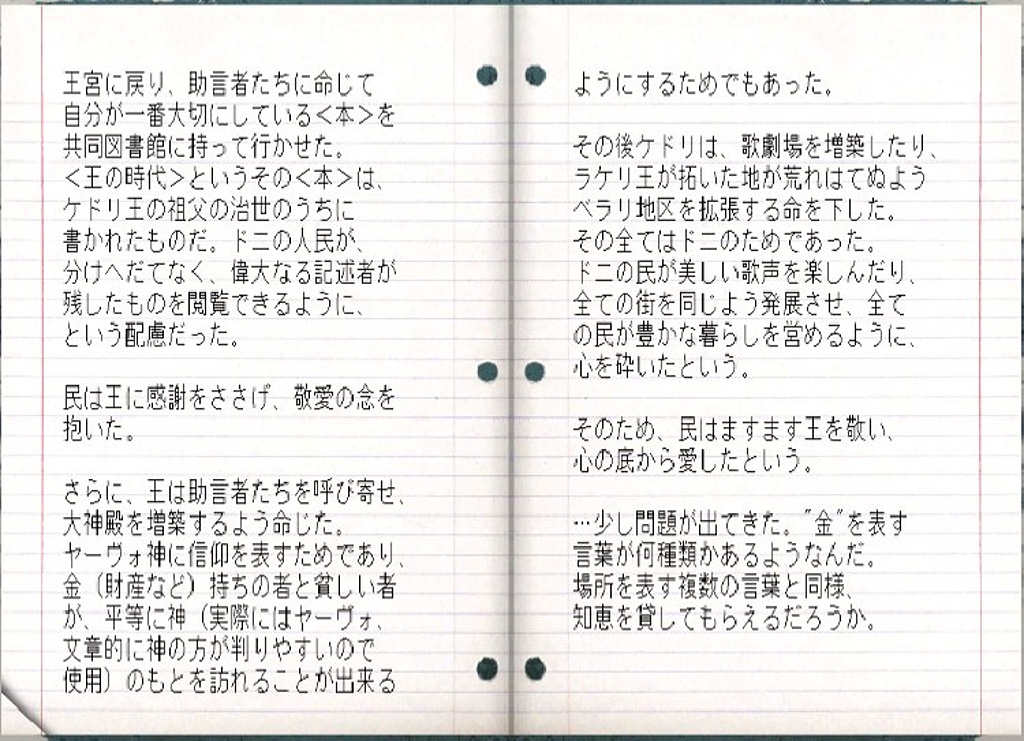 王宮に戻り、助言者たちに命じて
自分が一番大切にしている＜本＞を
共同図書館に持って行かせた。
＜王の時代＞というその＜本＞は、
ケドリ王の祖父の治世のうちに
書かれたものだ。ドニの人民が、
分けへだてなく、偉大なる記述者が
残したものを閲覧できるように、
という配慮だった。
民は王に感謝をささげ、敬愛の念を
抱いた。
さらに、王は助言者たちを呼び寄せ、
大神殿を増築するよう命じた。
ヤーヴォ神に信仰を表すためであり、
金（財産など）持ちの者と貧しい者
が、平等に神（実際にはヤーヴォ、
文章的に神の方が判りやすいので
使用）のもとを訪れることが出来る
ようにするためでもあった。
その後ケドリは、歌劇場を増築したり、
ラケリ王が拓いた地が荒れはてぬよう
ベラリ地区を拡張する命を下した。
その全てはドニのためであった。
ドニの民が美しい歌声を楽しんだり、
全ての街を同じよう発展させ、全て
の民が豊かな暮らしを営めるように、
心を砕いたという。
そのため、民はますます王を敬い、
心の底から愛したという。
…少し問題が出てきた。"金"を表す
言葉が何種類かあるようなんだ。
場所を表す複数の言葉と同様、
知恵を貸してもらえるだろうか。